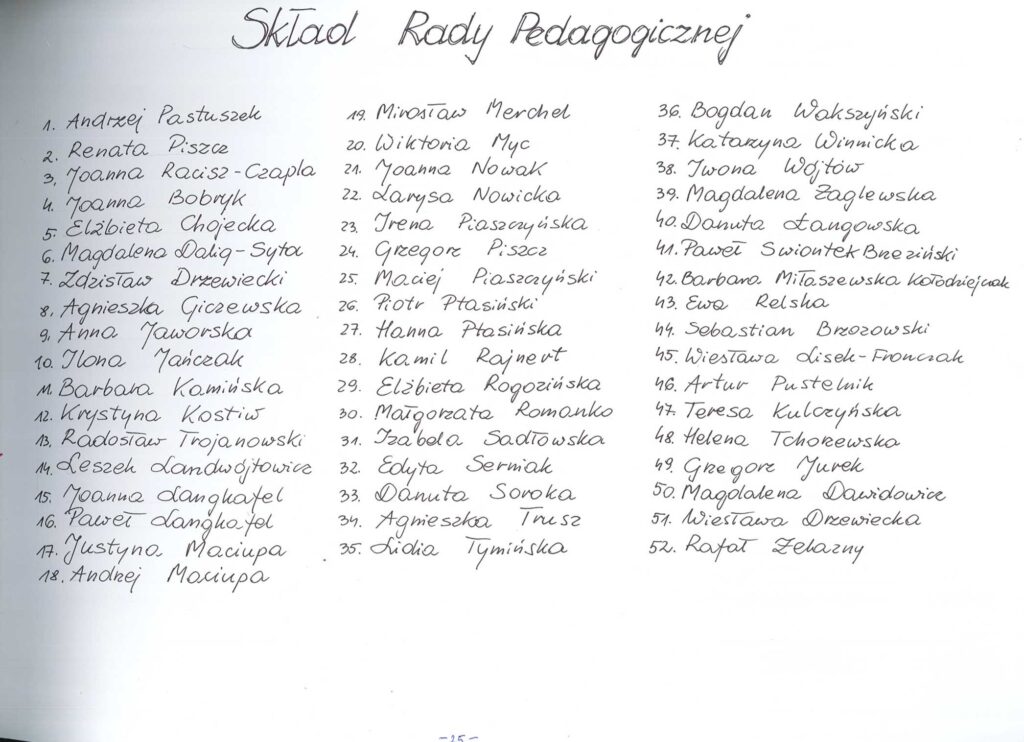 Skład Rady Pedagogicznej
1. Andrzej Pastuszek
2. Renata Piszcz
3. Joanna Racisz-Czapla
4. Joanna Bobryk
5. Elżbieta Chojecka
6. Magdalena Dalig-Syta
7. Zdzisław Drzewiecki
8. Agnieszka Giczewska
9. Anna Jaworska
10. Ilona Jańczak
11. Barbara Kamińska
12. Krystyna Kostiw
13. Radosław Trojanowski
14. Leszek Landwójtowicz
15. Joanna Langkafel
16. Paweł Langkafel
17. Justyna Maciupa
18. Andrzej Maciupa
19. Mirosław Merchel
20. Wiktoria Myc
21. Joanna Nowak
22. Larysa Nowicka
23. Irena Piaszczyńska
24. Grzegorz Piszcz
25. Maciej Piaszczyński
26. Piotr Ptasiński
27. Hanna Ptasińska
28. Kamil Rajnert
29. Elżbieta Rogozińska
30. Małgorzata Romanko
31. Izabela Sadłowska
32. Edyta Serniak
33. Danuta Soroka
34. Agnieszka Trusz
35. Lidia Tymińska
36. Bogdan Wakszyński
37. Katarzyna Winnicka
38. Iwona Wójtów
39. Magdalena Zaglewska
40. Danuta Łangowska
41. Paweł Swiontek Brzeziński
42. Barbara Miłaszewska Kołodziejczak
43. Ewa Relska
44. Sebastian Brzozowski
45. Wiesława Lisek-Fronczak
46. Artur Pustelnik
47. Teresa Kulczyńska
48. Helena Tchorzewska
49. Grzegorz Jurek
50. Magdalena Dawidowicz
51. Wiesława Drzewiecka
52. Rafał Żelazny
-25-